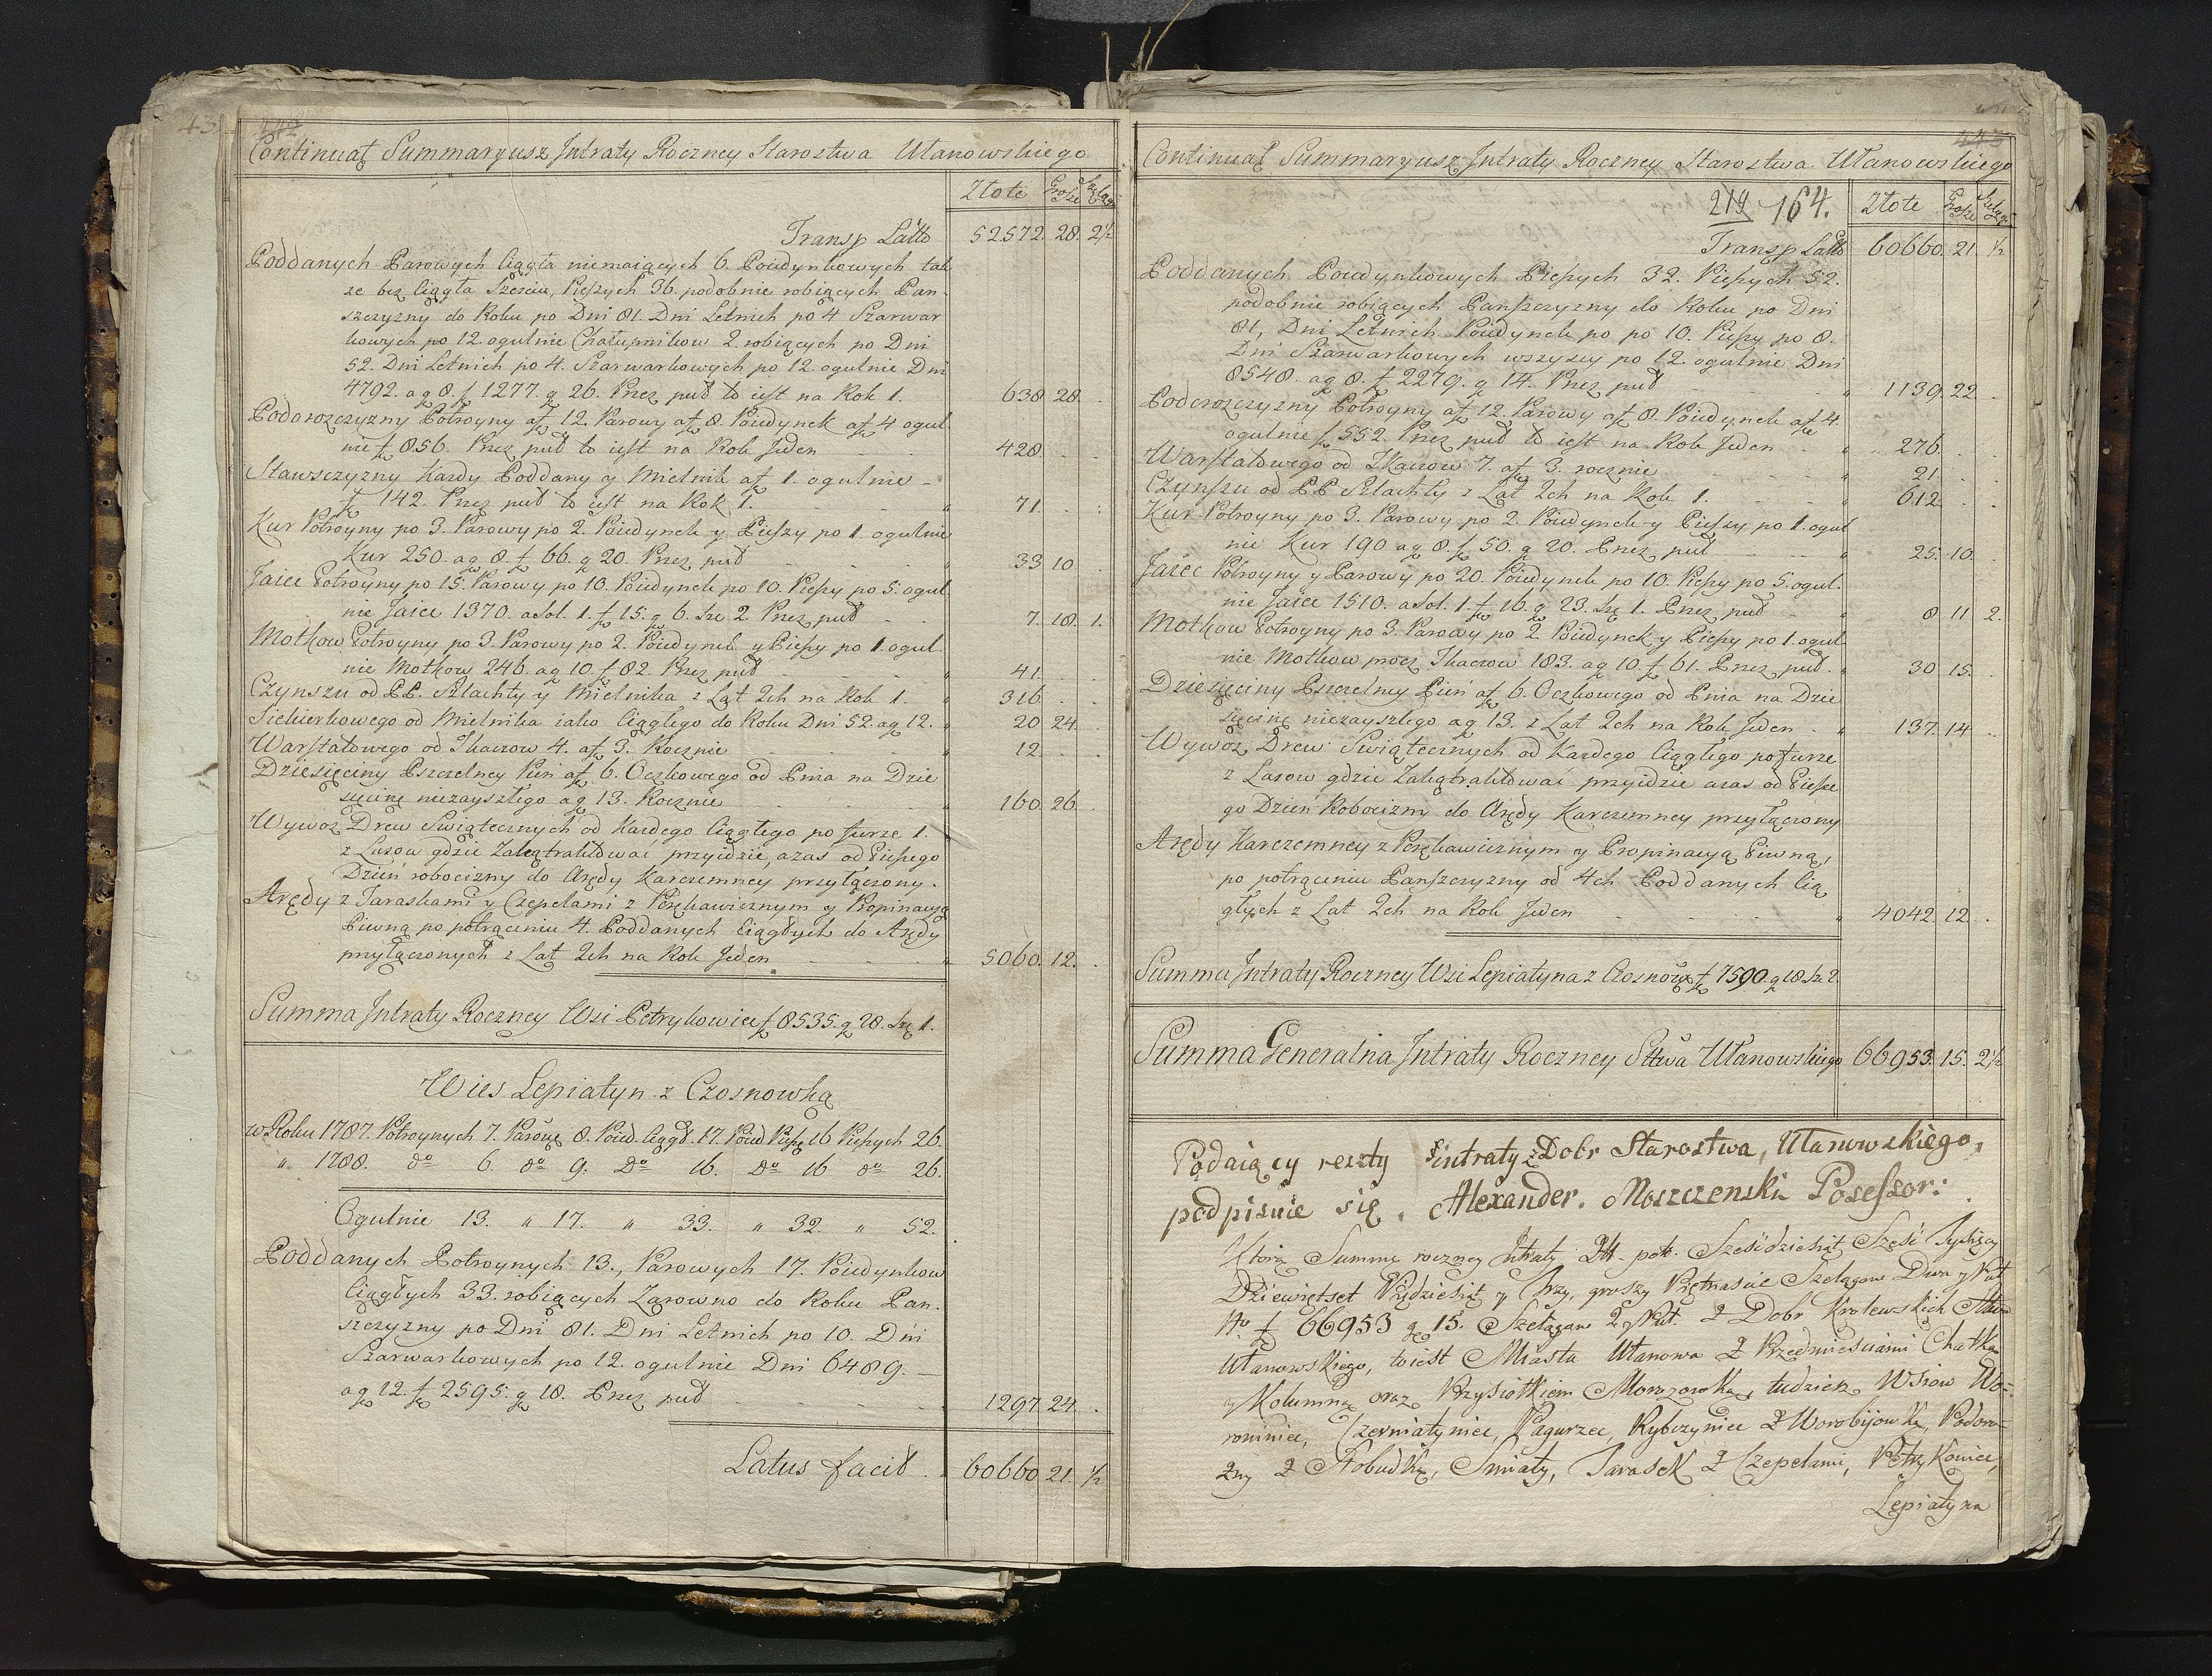 43. 442
Continuat Summaryusz Intraty Roczney Starostwa Ułanowskiego
Złote Grosze Szeląg
Transp Latto 52572. 28. 2½
Poddanych Parowych Ciągła niemaiących 6. Poiedynkowych tak
że bez Ciągła Sześciu, Pieszych 36. podobnie robiących Pan-
szczyzny do Roku po Dni 81. Dni Letnich po 4 Szarwar
kowych po 12. ogulnie Chałupnikow 2 robiących po Dni
52. Dni Letnich po 4. Szarwarkowych po 12 ogulnie Dni
4792. a g 8. f 1277. g 26. Przez puł to iest na Rok 1. 638 28. .
Podorozczyzny Potroyny a f 12. Parowy a f 8. Poiedynek a f 4 ogul-
nie f 856. Przez puł to iest na Rok Jeden 428. . .
Stawszczyzny Każdy Poddany y Mielnik a f 1. ogulnie -
f 142. Przez puł to iest na Rok 1. " 71. . .
Kur Potroyny po 3. Parowy po 2. Poiedynek y Pieszy po 1. ogulnie
Kur 250. a g 8. f 66. g 20. Przez puł " 33 10 .
Jaiec Potroyny po 15. Parowy po 10. Poiedynek po 10. Pieszy po 5. ogul-
nie Jaiec 1370. a Sol. 1. f 15. g 6. Sze 2. Przez puł 7. 18. 1.
Motkow Potroyny po 3. Parowy po 2. Poiedynek y Pieszy po 1. ogul-
nie Motkow 246. a g 10 f 82. Przez puł " 41. . .
Czynszu od PP. Szlachty y Mielnika z Lat 2ch na Rok 1. " 316. . .
Siekierkowego od Mielnika iako Ciągłego do Roku Dni 52. a g 12. " 20 24. .
Warsztatowego od Tkaczow 4. a f 3. Rocznie " 12. . .
Dziesięciny Pszczelney Pień a f 6. Oczkowego od Pnia na Dzie
sięcinę niezayszłego a g 13. Rocznie " 160 26. .
Wywoz Drew Swiątecznych od Każdego Ciągłego po furze 1.
z Lasow gdzie Zalegtralitować przyidzie, a zas od Pieszego
Dzień robocizny do Arędy Karczemney przyłączony.
Arędy z Taraskami y Czepelami z Perękawicznym y Propinacyą
Piwną po potrąceniu 4. Poddanych Ciągłych do Arędy
przyłączonych z Lat 2ch na Rok Jeden " 5060. 12. .
Summa Intraty Roczney Wsi Petrykowiec f 8535. g 28. Sze 1.
Wies Lepiatyn z Czosnowką
w Roku 1787. Potroynych 7. Parowę 8. Poied. Ciągł. 17. Poied Pieszę 16 Pieszych 26.
" 1788. do 6. do 9. Do 16. Do 16 do 26.
Ogulnie 13. " 17. " 33. " 32. " 52.
Poddanych Potroynych 13., Parowych 17. Poiedynkow
Ciągłych 33. robiących Zarowno do Roku Pan-
szczyzny po Dni 81. Dni Letnich po 10. Dni
Szarwarkowych po 12. ogulnie Dni 6489. -
a g 12. f 2595. g 18. Przez puł 1297 24. .
Latus facit . 60660 21. ½
443
Continuat Summaryusz Intraty Roczney Starostwa Ułanowskiego
219 164. Złote Grosze Szeląg
Transp Latto 60660. 21. ½
Poddanych Poiedynkowych Pieszych 32. Pieszych 52.
podobnie robiących Panszczyzny do Roku po Dni
81, Dni Letnich Poiedynek po 10. Pieszy po 8.
Dni Szarwarkowych wszyscy po 12. ogulnie Dni
8548. a g 8. f 2279. g 14. Przez puł " 1139. 22. .
Podorozczyzny Potroyny a f 12. Parowy a f 8. Poiedynek a f 4.
ogulnie f 552. Przez puł to iest na Rok Jeden " 276. . .
Warsztatowego od Tkaczow 7. a f 3. rocznie " 21. . .
Czynszu od PP Szlachty z Lat 2ch na Rok 1. " 612. . .
Kur Potroyny po 3. Parowy po 2. Poiedynek y Pieszy po 1. ogul
nie Kur 190 a g 8. f 50. g 20. Przez puł " 25. 10. .
Jaiec Potroyny y Parowy po 20. Poiedynek po 10. Pieszy po 5. ogul-
nie Jaiec 1510. a Sol. 1. f 16. g 23. Sze 1. Przez puł " 8 11 2.
Motkow Potroyny po 3. Parowy po 2 Poiedynek y Pieszy po 1. ogul-
nie Motkow procz Tkaczow 183. a g 10. f 61. Przez puł . " 30 15. .
Dziesięciny Pszczelney Pień a f 6. Oczkowego od Pnia na Dzie
sięcinę niezayszłego a g 13. z Lat 2ch na Rok Jeden . " 137. 14 .
Wywoz Drew Swiątecznych od Każdego Ciągłego po furze
z Lasow gdzie Zalegtralitować przyidzie a zas od Piesze
go Dzień Robocizny do Arędy Karczemney przyłączony
Arędy Karczemney z Perękawicznym y Propinacyą Piwną,
po potrąceniu Panszczyzny od 4ch Poddanych Cią
głych z Lat 2ch na Rok Jeden " 4042. 12. .
Summa Intraty Roczney Wsi Lepiatyna z Czosnowką f 7590. g 18 Sze 2.
Summa Generalna Intraty Roczney Sttwa Ułanowskiego 66953. 15. 2½
Podaiący reszty intraty z Dobr Starostwa, Ułanowskiego,
podpisuie się. Alexander. Moszczenski Posessor:
Ktorą Summę roczney Intraty Zł. pol. Sześćdziesiąt Sześć Tysięcy
Dziewięćset Pięćdziesiąt y Trzy, groszy Piętnascie Szelągow Dwa y Puł
No f 66953 g 15. Szelągow 2 y Puł. z Dobr Krolewskich Sttwa
Ułanowskiego, to iest Miasta Ułanowa z Przedmieściami Chatką
y Kolumną oraz Przysiołkiem Morozowką, tudzież Wsiow Wo-
roniniec, Czerniatyniec, Pagurzec, Rybczyniec z Worobijowką, Podoro-
żny z Słobudką, Smiały, Tarasek z Czepelami, Petrykowiec,
Lepiatyna